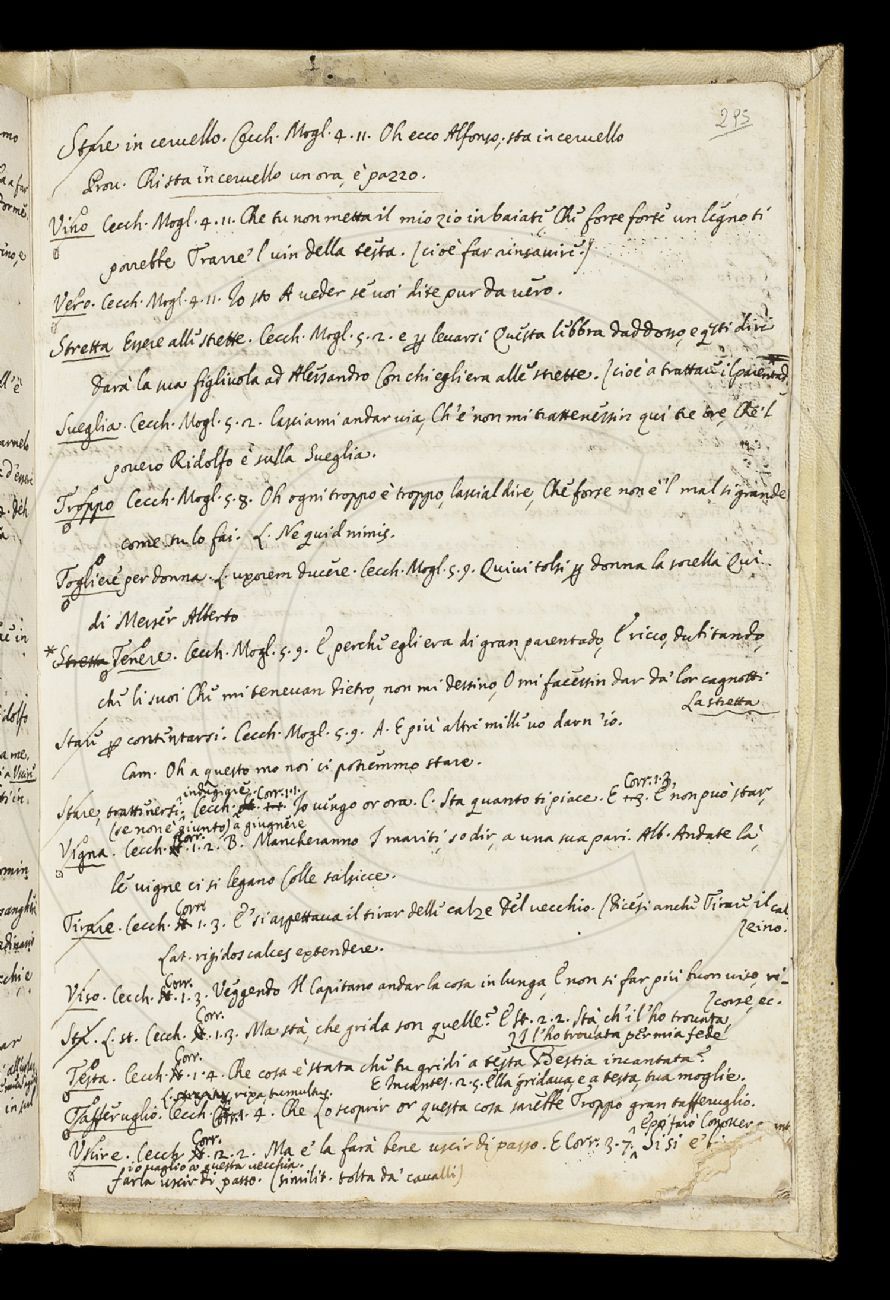 295
Stare in ceruello. Cecch. Mogl. 4. 11. Oh ecco Alfonso; sta in ceruello
Prou. Chi sta in ceruello un ora, è pazzo.
Vino Cecch. Mogl. 4. 11. Che tu non metta il mio zio in baiate, Che forse forse un legno ti
potrebbe Trarre 'l uin della testa. [cioè far rinsauire.]
Vero. Cecch. Mogl. 4. 11. Io sto A ueder se uoi dite pur da uero.
Stretta Essere alle strette. Cecch. Mogl. 5. 2. e p leuarsi Questa libbra daddosso, e qsti dirà
darà la sua figliuola ad Alessandro Con chi egli era alle strette. [cioè a trattare il parentad.
Sueglia. Cecch. Mogl. 5. 2. lasciami andar uia, Ch'e' non mi trattenessin qui tre ore, Che 'l
pouero Ridolfo è sulla Sueglia.
Troppo Cecch. Mogl. 5. 8. Oh ogni troppo è troppo, lascial dire, Che forse non è 'l mal si grande
come tu lo fai. L. Ne quid nimis.
Togliere per donna. L. uxorem ducere. Cecch. Mogl. 5. 9. Quiui tolsi p donna la sorella Qui
di Messer Alberto
* Stretta Tenere. Cecch. Mogl. 5. 9. E perche egli era di gran parentado, E ricco, dubitando,
che li suoi Che mi teneuan dietro, non mi dessino, O mi facessin dar da lor cagnotti
La stretta
Stare p contentarsi. Cecch. Mogl. 5. 9. A. E più altre mille uo darn' io.
Cam. Oh a questo mo noi ci potremmo stare.
indugiare. Corr. 1. 1. Corr. 1. 3.
Stare, trattenersi, Cecch. Io uengo or ora. C. Sta quanto ti piace. E E' non può star,
(se non è giunto) a giugnere
Corr.
Vigna. Cecch. 1. 2. B. Mancheranno I mariti, so dir, a una sua pari. Alb. Andate là,
le uigne ci si legano Colle salsicce.
Corr.
Tirare. Cecch. 1. 3. E' si aspettaua il tirar delle calze Del uecchio. (dicesi anche Tirare il cal
zino.
Lat. rigidos calces extendere.
Corr.
Viso. Cecch. St. 1. 3. Veggendo Il Capitano andar la cosa in lunga, E non si far più buon uiso, ri-
corse, ec.
Corr.
Sta. L. st. Cecch. St. 1. 3. Ma stà, che grida son quelle? E St. 2. 2. Stà ch'i' l'ho trouata,
I' l'ho trouata per mia fede
Corr.
Testa. Cecch. St. 1. 4. Che cosa è stata che tu gridi a testa Bestia incantata?
E Incantes. 2. 5. Ella gridaua, e a testa, tua moglie.
rixa, tumultus.
Tafferuglio. Cecch. Corr. 1. 4. Che Lo scoprir or questa cosa sarebbe Troppo gran tafferuglio.
E pp farò Conoscer
Corr.
Vscire. Cecch. St. 2. 2. Ma e' la farà bene uscir di passo. E Corr. 3. 7. Di si
io uoglio a questa uecchia
farla uscir di passo. (similit. tolta da' caualli)